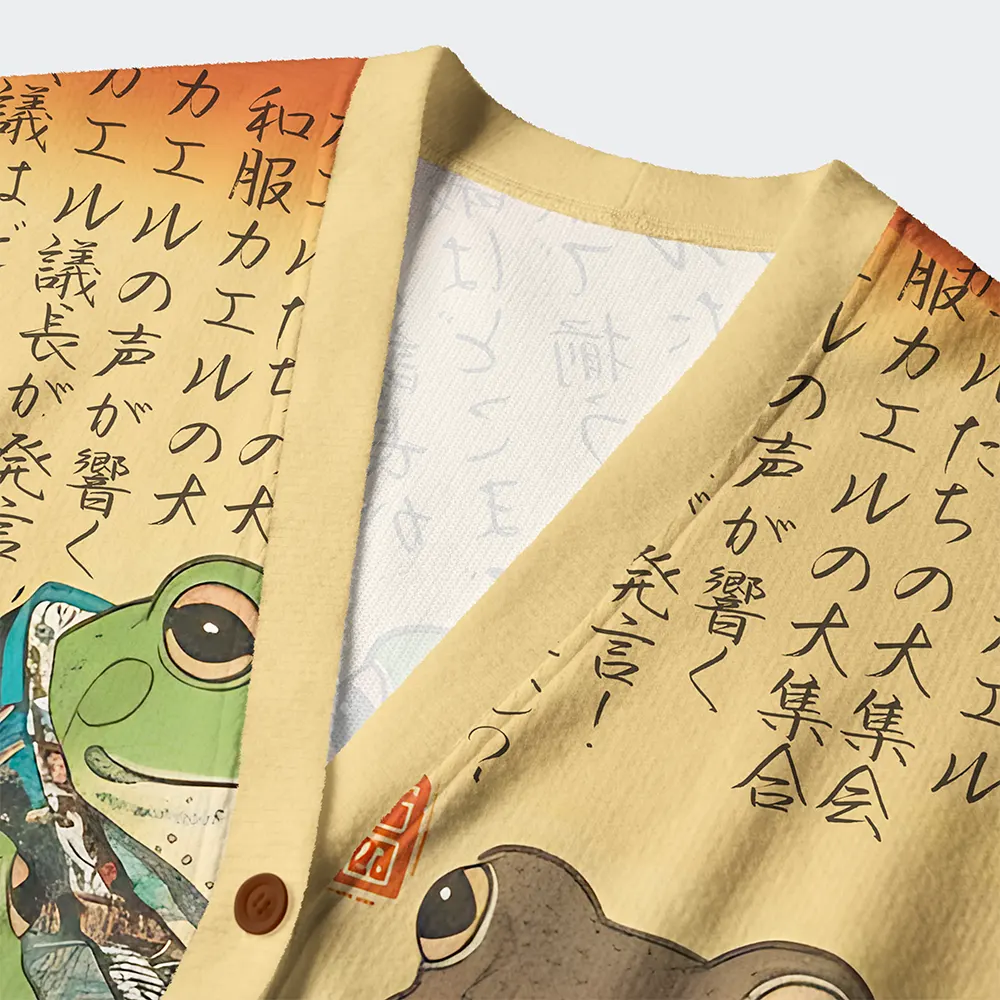 カエル
ルたちの大集会
服カエルの大集合
ルの声が響く
発言！
こ？
エルたちの大
和服カエルの大
カエルの声が響く
カエル議長が発言
議はど